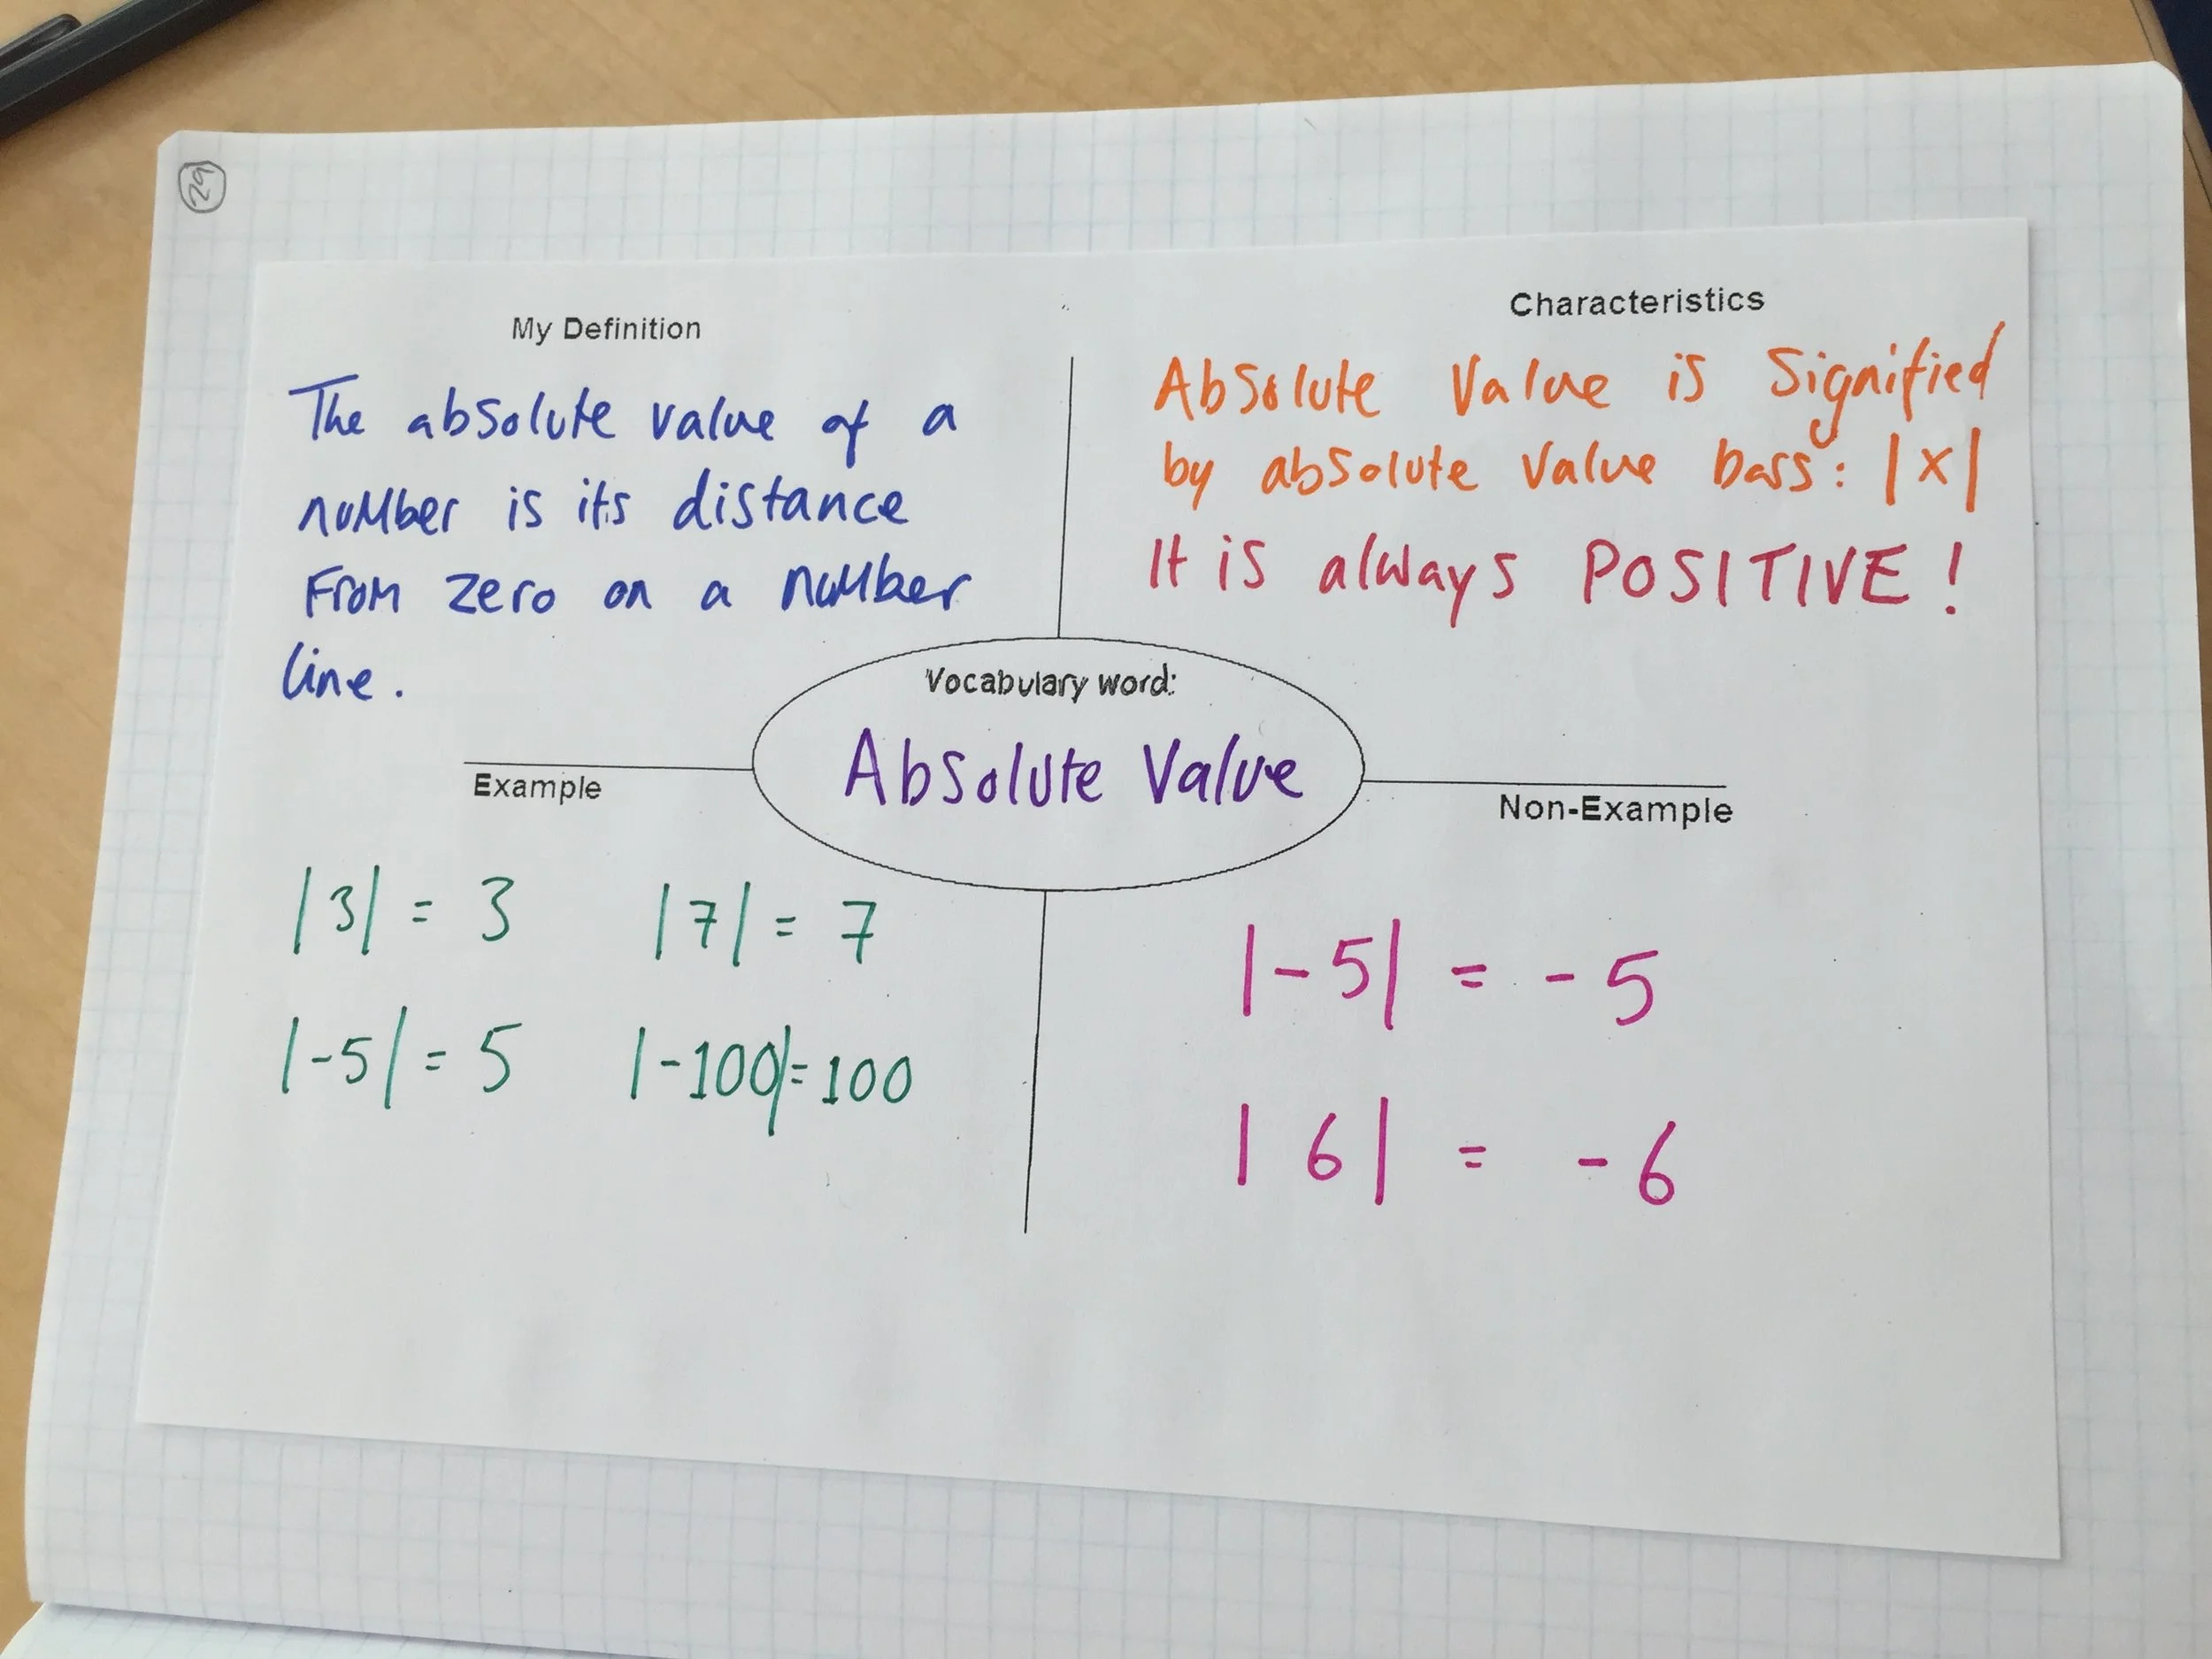 29
My Definition
The absolute value of a
number is its distance
From zero on a number
line.
Characteristics
Absolute Value is Signified
by absolute value bars: |x|
It is always POSITIVE!
Vocabulary word:
Absolute Value
Example
|3| = 3 |7| = 7
|-5| = 5 |-100|=100
Non-Example
|-5| = -5
|6| = -6